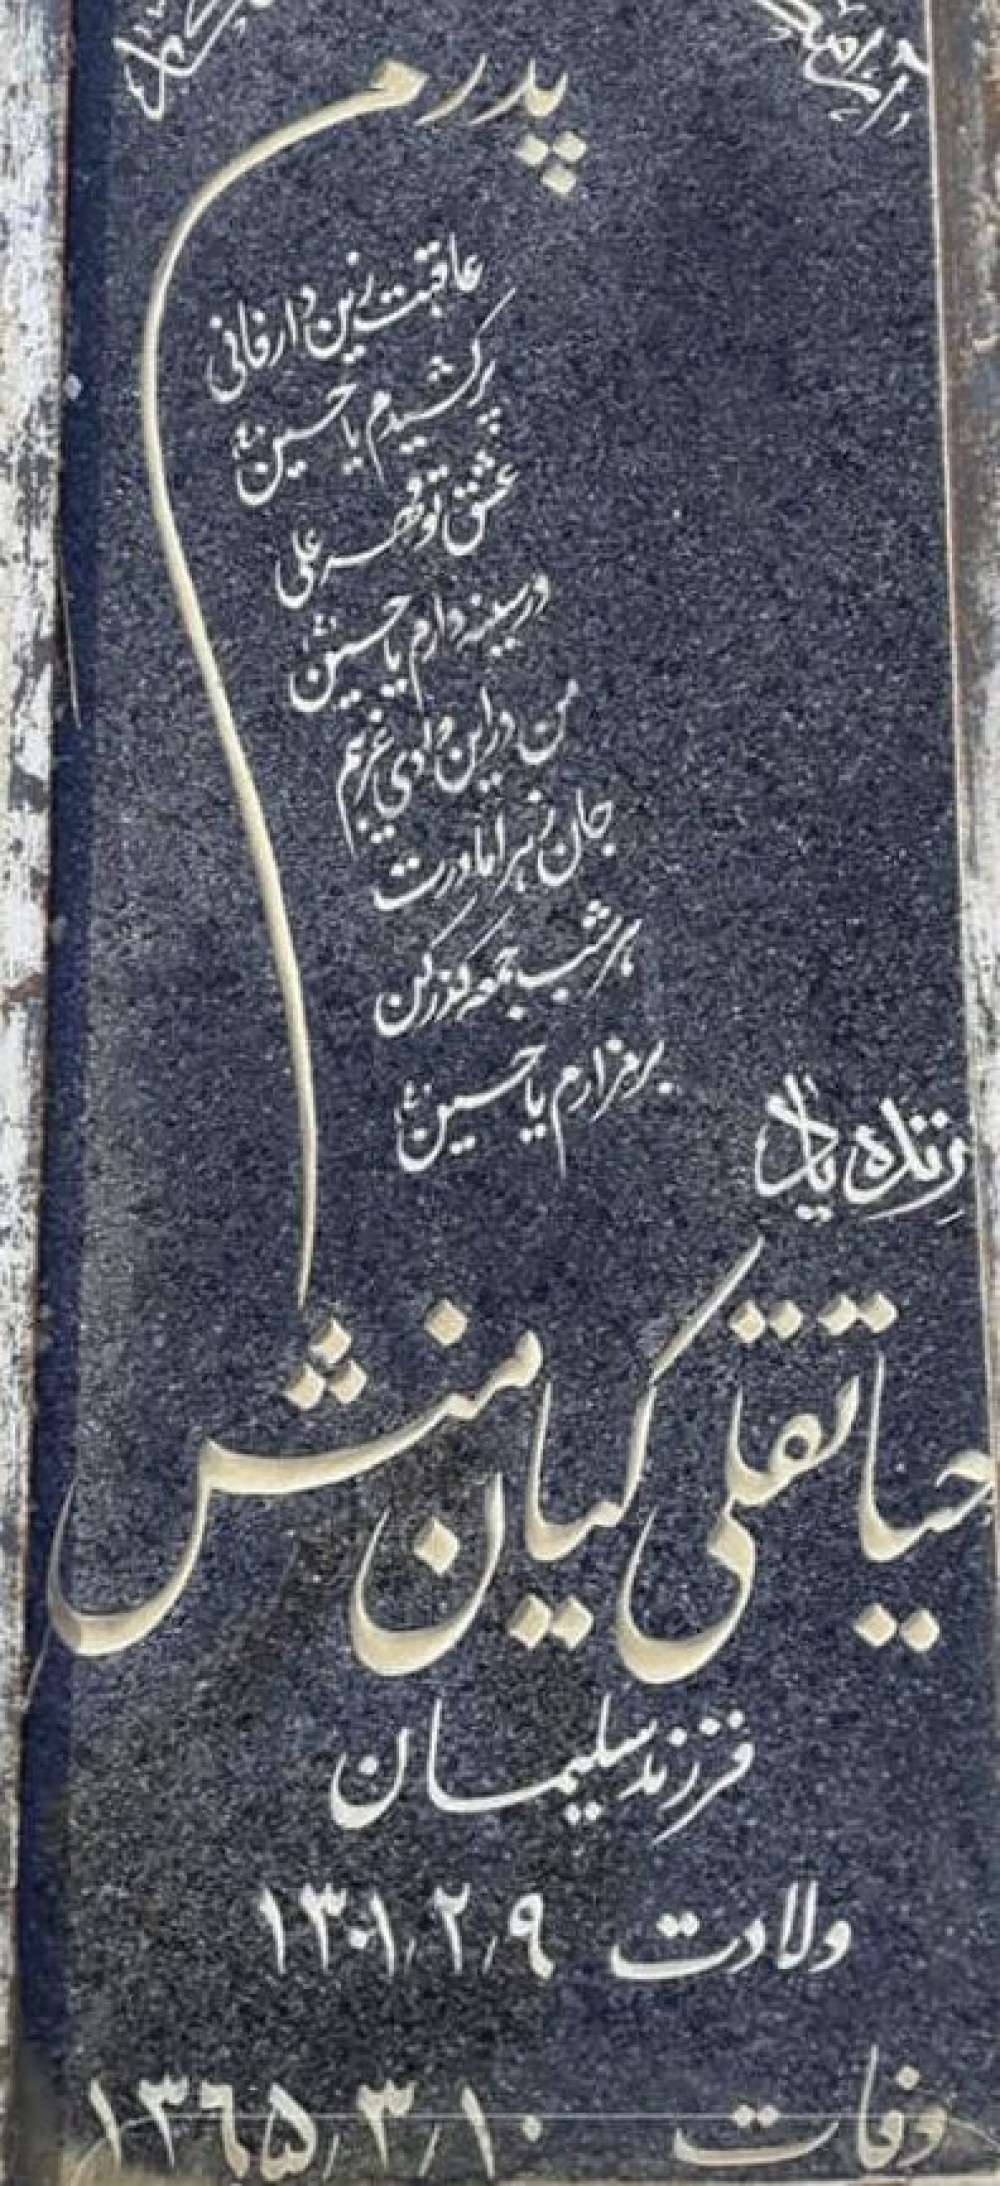 پدرم
عاقبت زین دار فانی
پر کشیدم یا حسین
عشق تو مهر علی
در سینه دارم یا حسین
من در این وادی غریبم
جان زهرا مادرت
هر شب جمعه گذر کن
بر مزارم یا حسین
زنده یاد
حیاتقلی کیان منش
فرزند سلیمان
ولادت ۱۳۰۱/۲/۹
وفات ۱۳۶۵/۳/۱۰